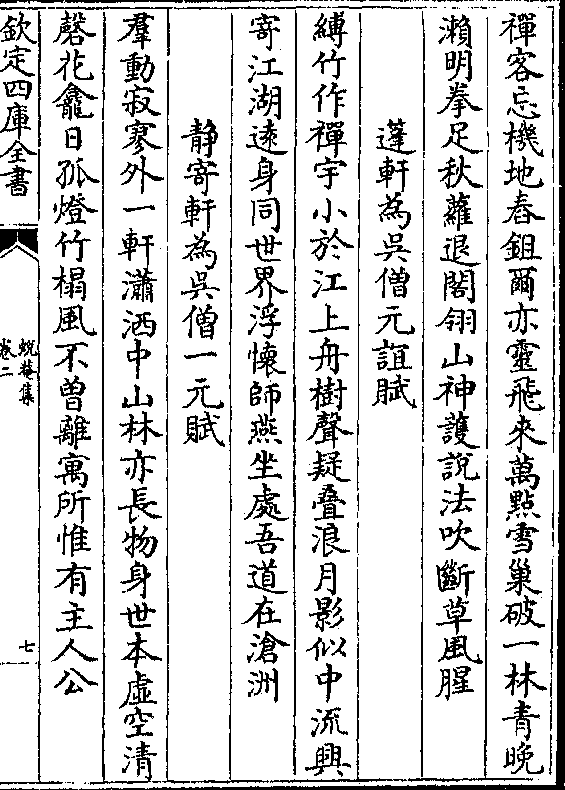 禪客忘機地舂鉏爾亦靈飛來萬㸃雪巢破一林青晚
瀨明拳足秋蘿退閣翎山神䕶說法吹斷草風腥
蓬軒為吳僧元誼賦
縛竹作禪宇小於江上舟樹聲疑叠浪月影似中流興
寄江湖逺身同世界浮懷師燕坐處吾道在滄洲
静寄軒為吳僧一元賦
羣動寂寥外一軒瀟洒中山林亦長物身世本虛空清
磬花龕日孤燈竹榻風不曾離寓所惟有主人公
欽定四庫全書
蛻菴集
卷二
七